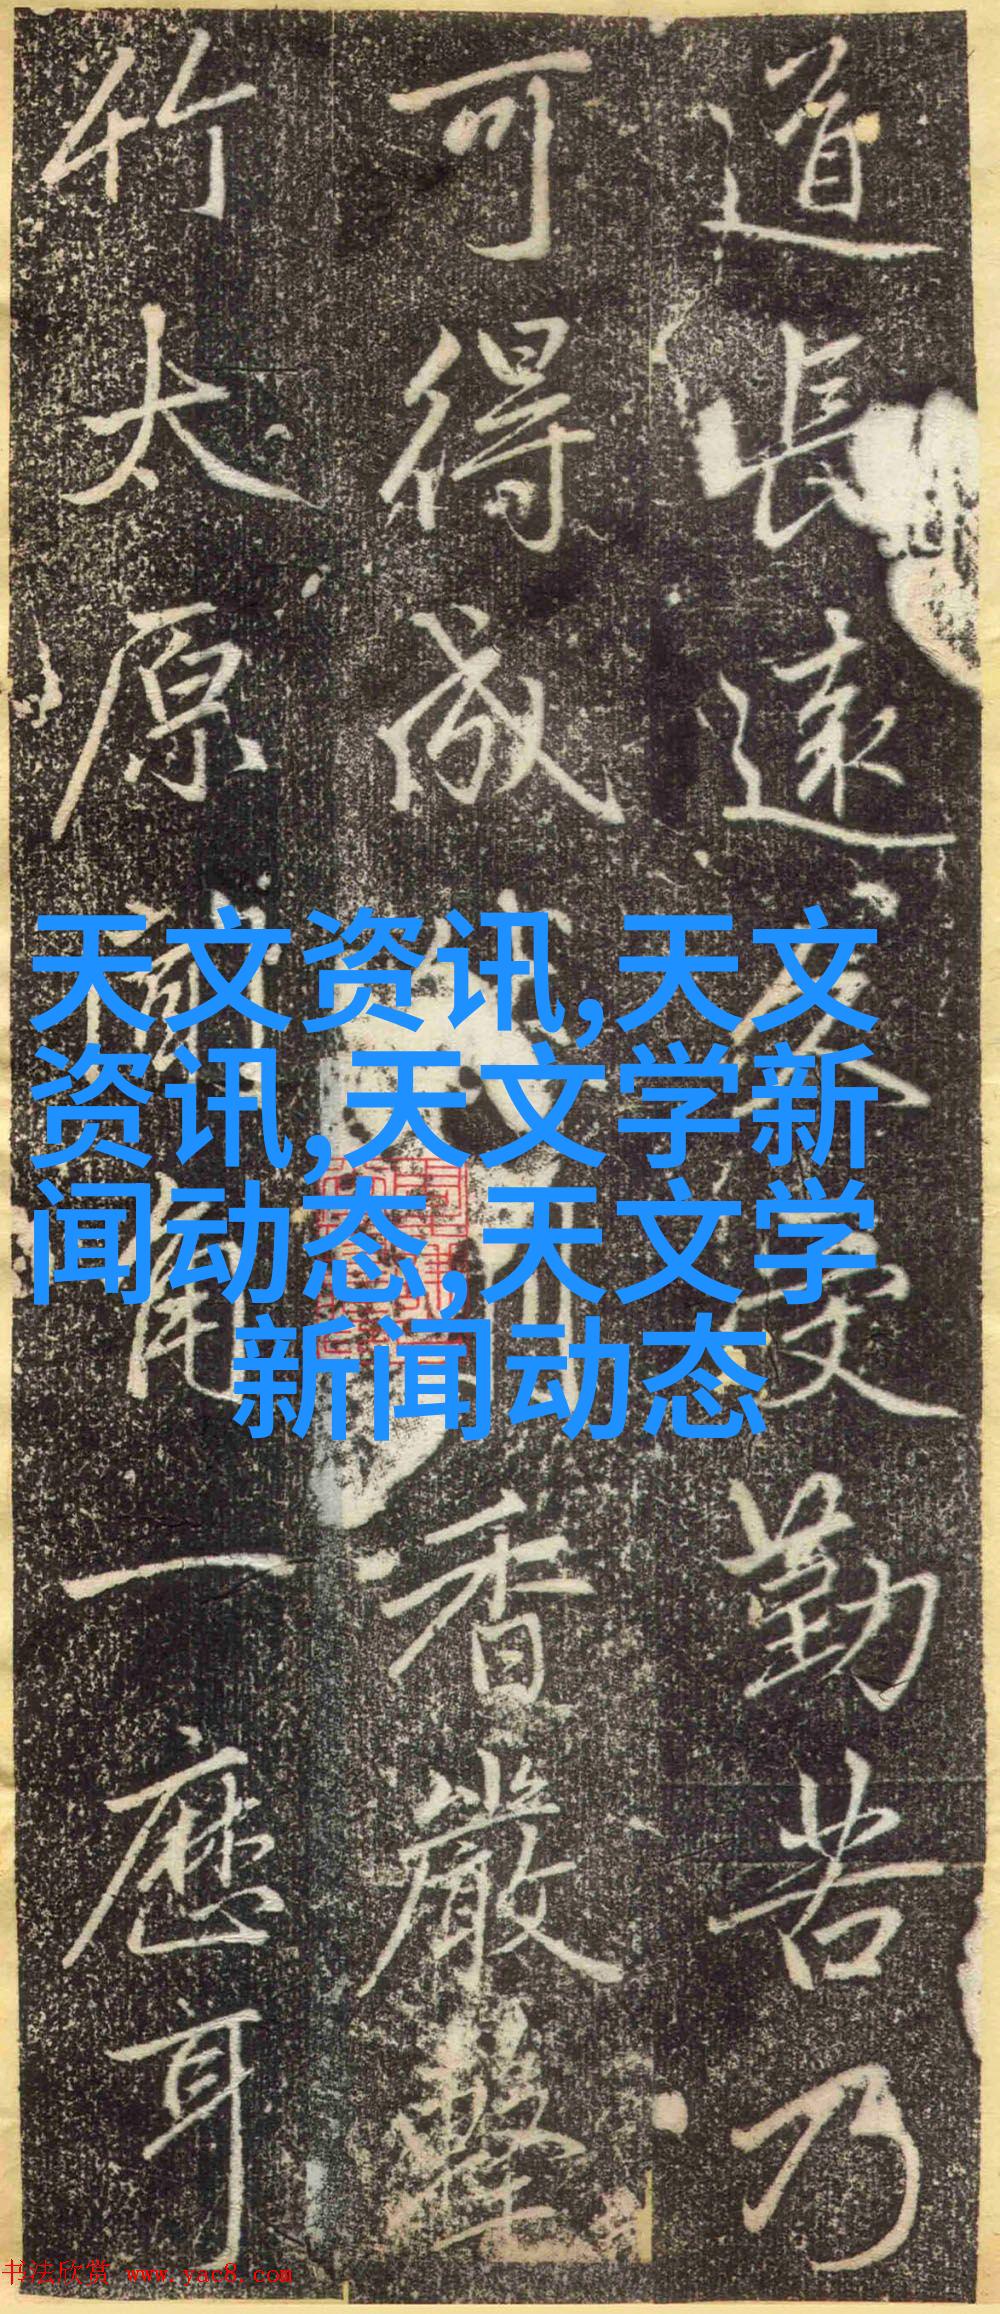 道長遠久受勤苦乃
可得成香嚴擊
竹太原聞角一應耳
天文资讯,天文
资讯,天文学新
闻动态,天文学
新闻动态
书法欣赏 www.yac8.com